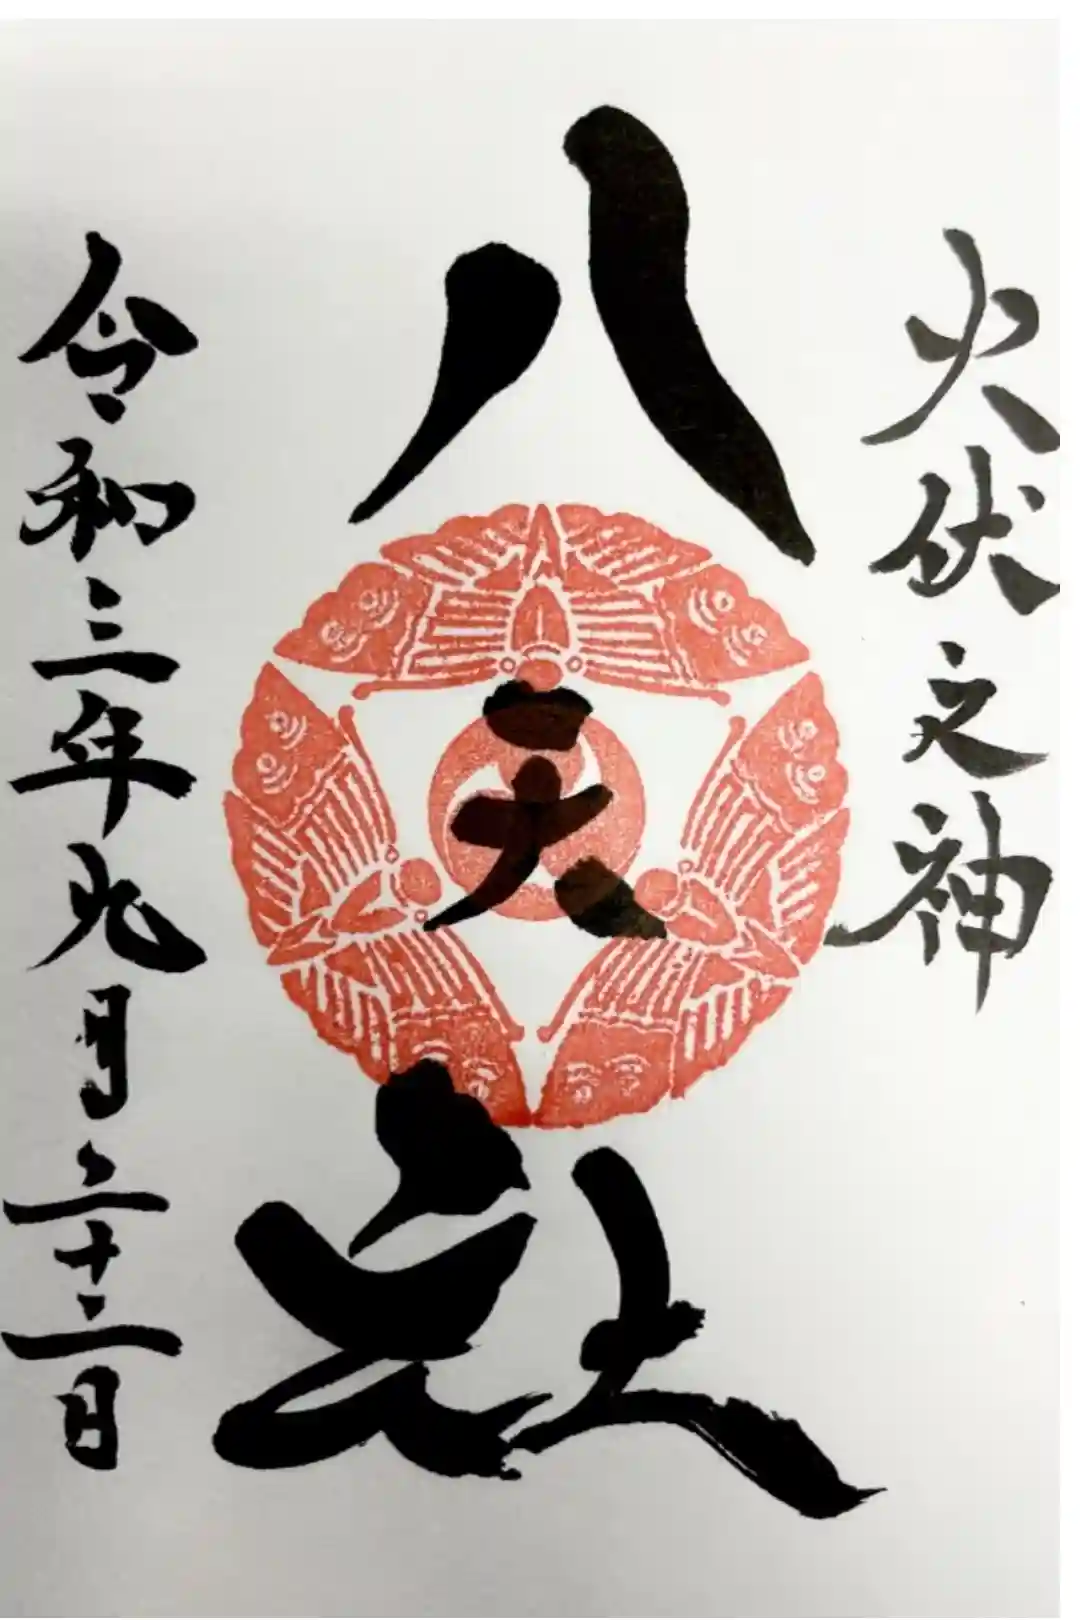 火伏之神
八天社
令和三年九月二十二日